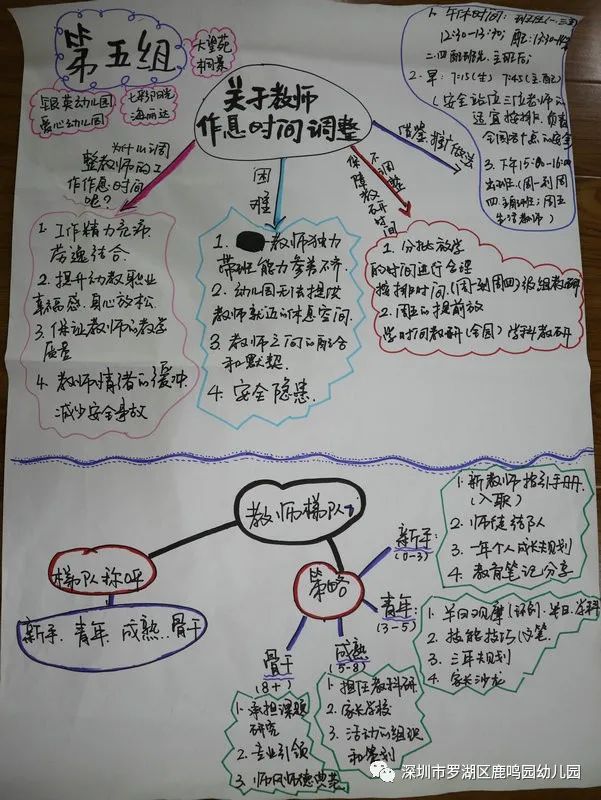 第五组
大望苑
桐景
银英幼儿园
爱心幼儿园
七彩阳光
海丽达
关于教师
作息时间调整
为什么调
整教师的工
作作息时间
呢?
困难
不调整
保障教研时间
借鉴推广做法
1. 工作精力充沛
劳逸结合
2. 提升幼教职业
幸福感,身心放松
3. 保证教师的教学
质量
4. 教师情绪的缓冲,
减少安全事故
教师独力
带班能力参差不齐
2. 幼儿园无法提供
教师就近的休息空间
3. 教师之间的配合
和默契
4. 安全隐患
1. 分批放学
的时间进行合理
按排时间,(周一到周四)级组教研
2. 周五的提前放
学时间教研(全园)学科教研
1. 午休时间:
12:30-13:30
2. 早: 7:15(生) 7:45(主.配)
(安全站位三位老师的
适宜按排, 负责
全园各个点的安全
3. 下午15:00-16:00
出班(周一到周
四,主配班; 周五
生活教师)
教师梯队
梯队称呼
新手、青年、成熟、骨干
策略
新手:
(0-3)
1. 新教师指引手册
(入职)
2. 师徒结队
3. 一年个人成长规划
4. 教育笔记分享
青年:
(3-5)
1. 半日观摩
2. 技能技巧
3. 三年规划
4. 家长沙龙
成熟
(5-8)
1. 担任教科研
2. 家长学校
3. 活动的组织
和策划
骨干
(8+)
1. 承担课题
研究
2. 专业引领
3. 师风师德典范
深圳市罗湖区鹿鸣园幼儿园